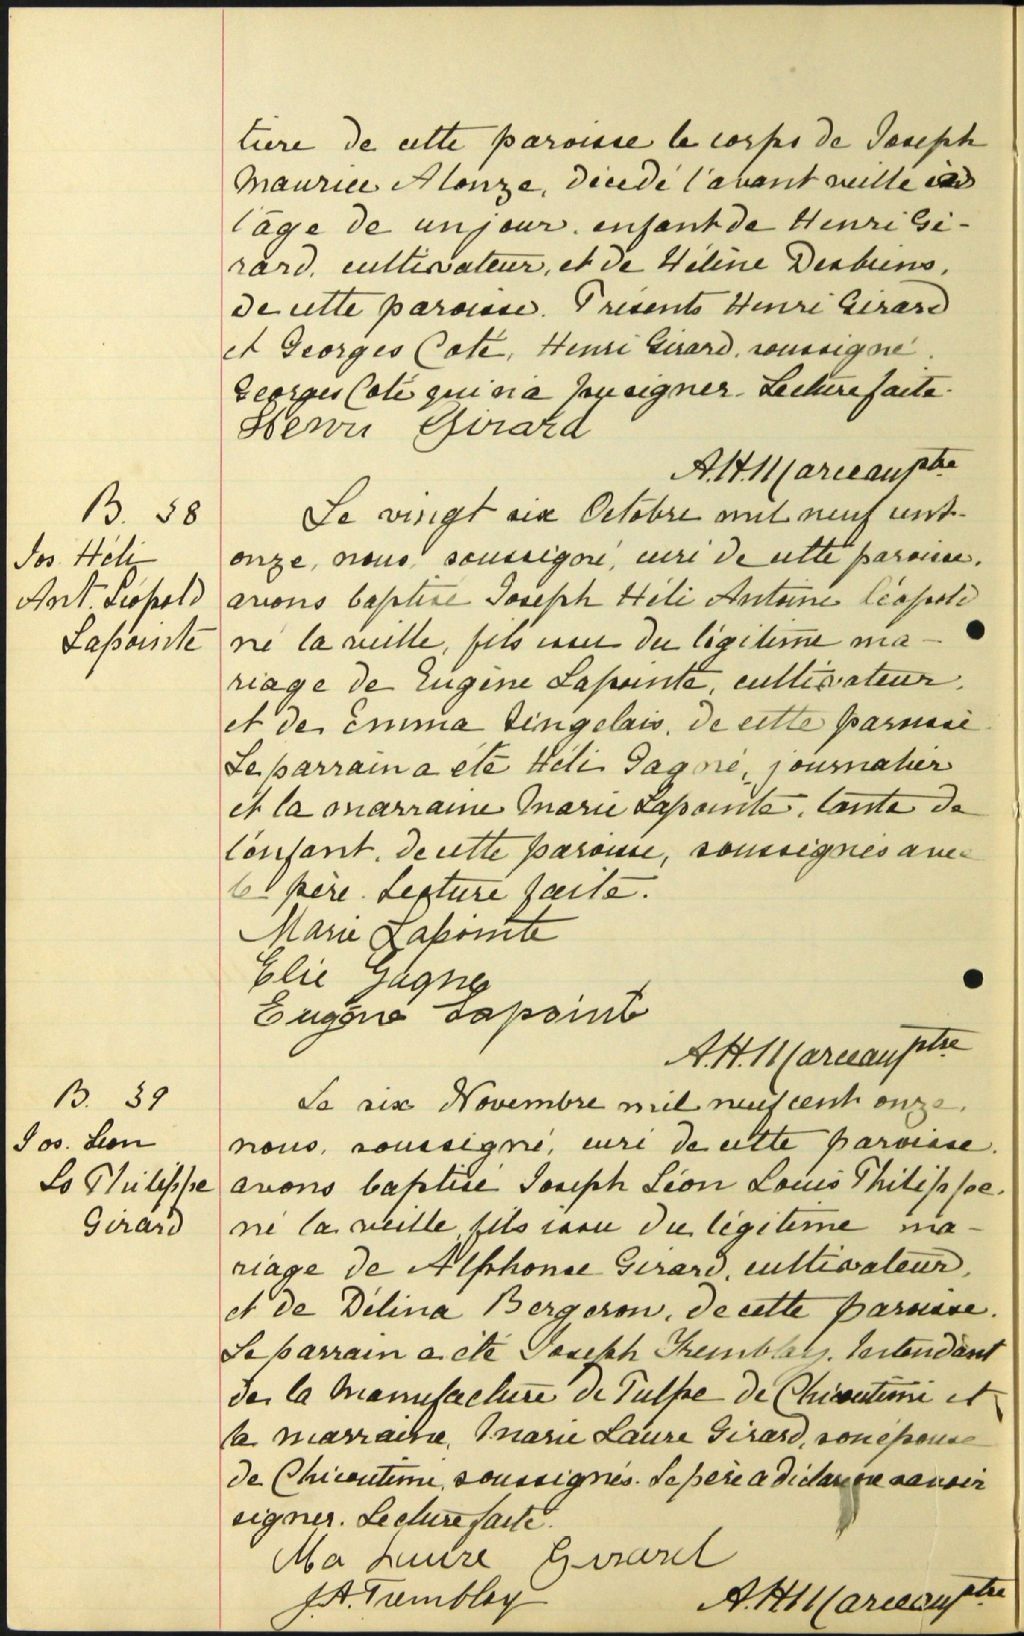 tière de cette paroisse le corps de Joseph
Maurice Alonze, décedé l'avant veille
l'âge de un jour. enfant de Henri Gi-
rard, cultivateur, et de Hélène Desbiens,
de cette paroisse. Présents Henri Girard
et Georges Coté, Henri Girard, soussigné.
Georges Coté qui n'a pu signer. Lecture faite.
Henri Girard
A.H. Marceau ptre
B. 38
Jos. Héli
Ant. Léopold
Lapointe
Le vingt six Octobre mil neuf cent-
onze, nous, soussigné, curé de cette paroisse,
avons baptisé Joseph Héli Antoine Léopold
né la veille, fils issu du légitime ma-
riage de Eugène Lapointe, cultivateur,
et de Emma Singelais, de cette paroisse
Le parrain a été Héli Gagné, journalier
et la marraine Marie Lapointe, tante de
l'enfant, de cette paroisse, soussignés avec
le père. Lecture faite.
Marie Lapointe
Elie Gagne
Eugène Lapointe
A.H. Marceau ptre
B. 39
Jos. Léon
Ls Philippe
Girard
Le six Novembre mil neuf cent onze,
nous, soussigné, curé de cette paroisse,
avons baptisé Joseph Léon Louis Philippe,
né la veille, fils issu du légitime ma-
riage de Alphonse Girard, cultivateur,
et de Délina Bergeron, de cette paroisse.
Le parrain a été Joseph Tremblay, Intendant
de la Manufacture de Pulpe de Chicoutimi et
la marraine, Marie Laure Girard, son épouse
de Chicoutimi, soussignés. Le père a déclaré ne savoir
signer. Lecture faite.
Ma Laure Girard
J.A. Tremblay
A.H. Marceau ptre